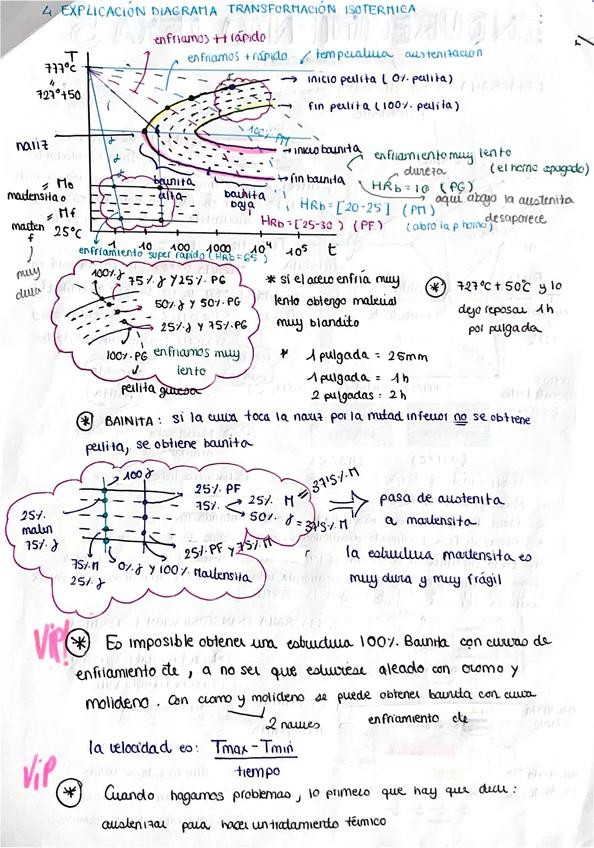 4 EXPLICACIÓN DIAGRAMA TRANSFORMACIÓN ISOTERMICA
enfriamos ++ rápido
enfriamos + rápido
temperatura austenizacion
T
777ºC
727º+50
inicio perlita (0% perlita)
fin perlita (100% perlita)
100% PM
nariz
inicio bainita
fin bainita
bainita alta
bainita baja
Mo
martensita o
Mf
25ºC
muy dura
1 10 100 1000 10⁴ 10⁵ t
enfriamiento muy lento
(el horno apagado)
dureza
HRb = 10 (PG)
aqui abajo la austenita
desaparece
HRb = [20-25] (PM)
HRb = [25-30) (PF) (abro la p horno)
enfriamiento super rapido (HRb = 65)
100% γ
75% γ Y 25% PG
50% γ y 50% PG
25% γ Y 75% PG
100% PG
enfriamos muy
lento
perlita gruesa
* si el acero enfria muy
lento obtengo material
muy blandito
* 727ºC + 50ºC y lo
dejo reposar 1h
por pulgada
* 1 pulgada = 25mm
1 pulgada = 1h
2 pulgadas = 2h
* BAINITA: si la curva toca la nariz por la mitad inferior no se obtiene
perlita, se obtiene bainita
100 γ
25% PF
75%
25% M = 37'5% M
50% γ = 37'5% M
25%
marten
75% γ
75% M
25% γ
0% γ y 100% Martensita
25% PF y 75% M
pasa de austenita
a martensita
la estructura martensita es
muy dura y muy frágil
Vip!
* Es imposible obtener una estructura 100% Bainita con curvas de
enfriamiento cte, a no ser que estuviese aleado con cromo y
molideno. Con cromo y molideno se puede obtener bainita con curva
2 narices
enfriamiento cte
la velocidad es: Tmax - Tmin
tiempo
Vip
* Cuando hagamos problemas, lo primero que hay que decir:
austenizar para hacer un tratamiento térmico